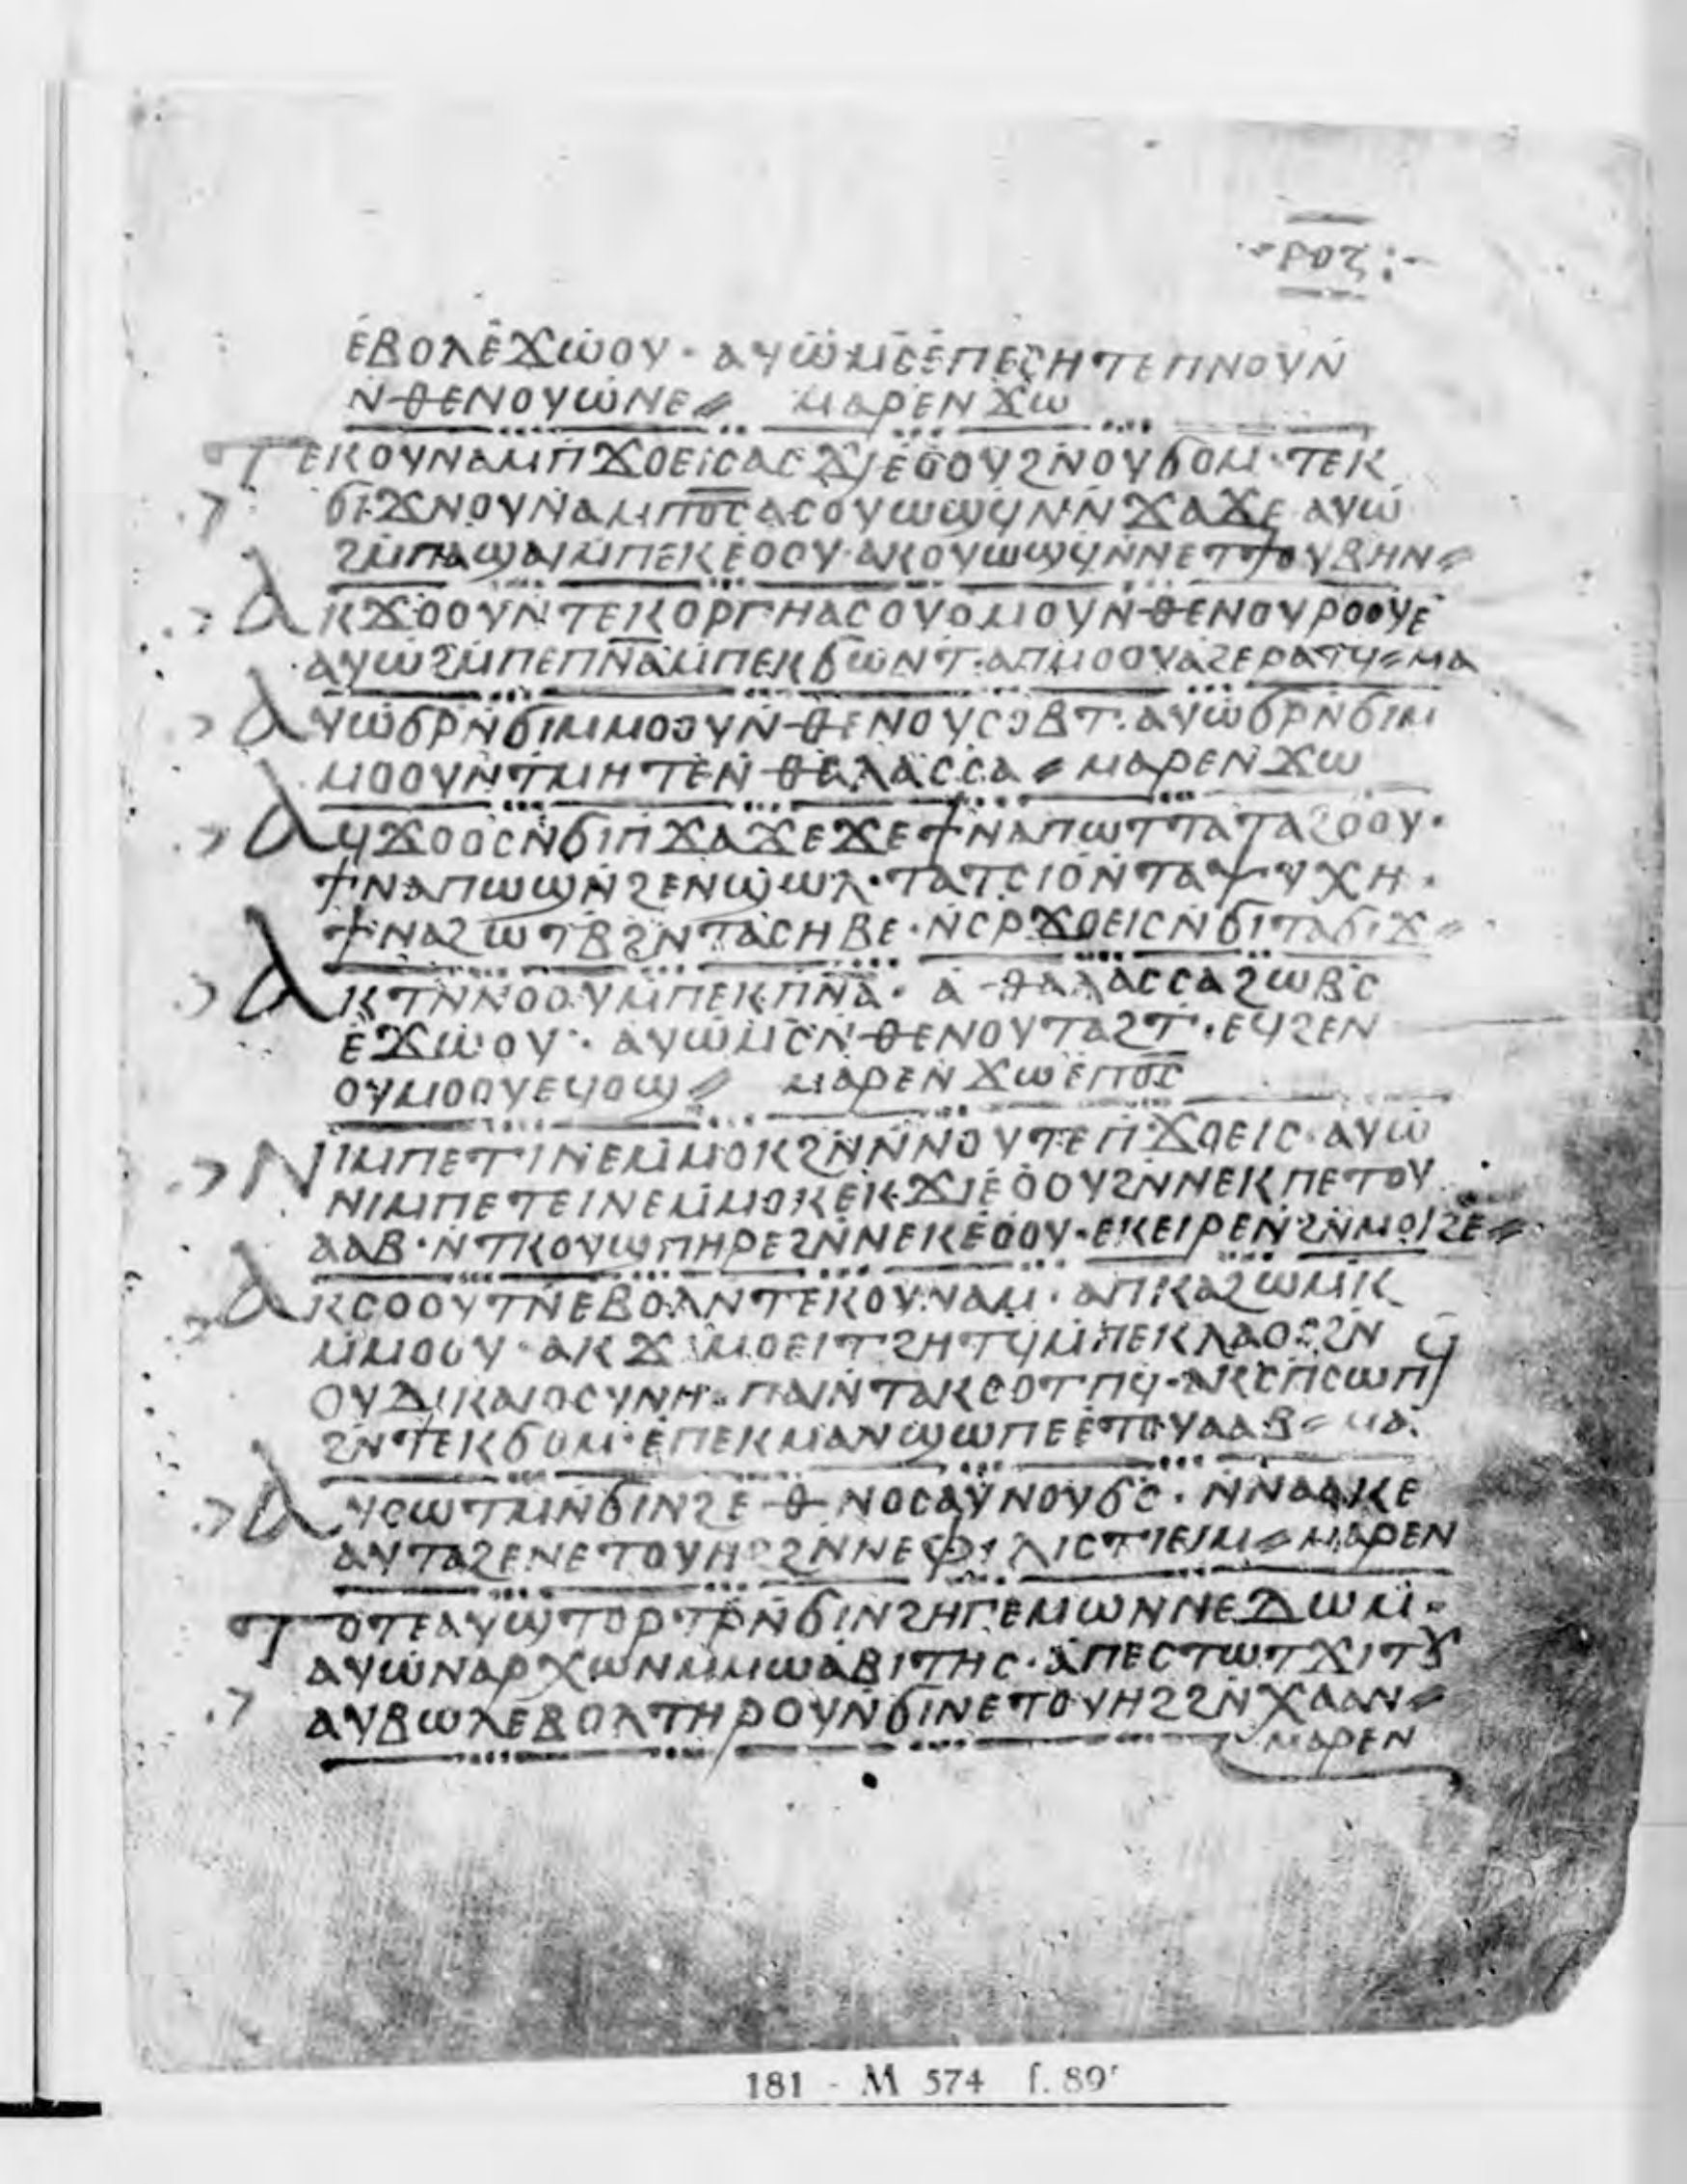 ⲣⲟⲍ
ⲉⲃⲟⲗⲉϫⲱⲟⲩ · ⲁⲩⲱⲙⲥⲉⲡⲉⲥⲏⲧⲉⲡⲛⲟⲩⲛ
ⲛⲑⲉⲛⲟⲩⲱⲛⲉ⸗ ⲙⲁⲣⲉⲛϫⲱ
ⲧⲉⲕⲟⲩⲛⲁⲙⲡϫⲟⲉⲓⲥⲁⲥϫⲓⲉⲟⲟⲩϩⲛⲟⲩϭⲟⲙ · ⲧⲉⲕ
ϭⲓϫⲛⲟⲩⲛⲁⲙⲡⲟ̅ⲥ̅ⲁⲥⲟⲩⲱϣϥⲛⲛϫⲁϫⲉ ⲁⲩⲱ
ϩⲙⲡⲁϣⲁⲓⲙⲡⲉⲕⲉⲟⲟⲩ · ⲁⲕⲟⲩⲱϣϥⲛⲛⲉⲧϯⲟⲩⲃⲏⲛ⸗
ⲁⲕϫⲟⲟⲩⲛⲧⲉⲕⲟⲣⲅⲏⲁⲥⲟⲩⲟⲙⲟⲩⲛⲑⲉⲛⲟⲩⲣⲟⲟⲩⲉ
ⲁⲩⲱϩⲙⲡⲉⲡⲛ̅ⲁ̅ⲙⲡⲉⲕϭⲱⲛⲧ · ⲁⲡⲙⲟⲟⲩⲁϩⲉⲣⲁⲧϥ⸗ⲙⲁ
ⲁⲩⲱϭⲣⲛϭⲓⲙⲙⲟⲟⲩⲛⲑⲉⲛⲟⲩⲥⲟⲃⲧ · ⲁⲩⲱϭⲣⲛϭⲓⲙ
ⲙⲟⲟⲩⲛⲧⲙⲏⲧⲉⲛⲑⲁⲗⲁⲥⲥⲁ⸗ ⲙⲁⲣⲉⲛϫⲱ
ⲁϥϫⲟⲟⲥⲛϭⲓⲡϫⲁϫⲉϫⲉϯⲛⲁⲡⲱⲧⲧⲁⲧⲁϩⲟⲟⲩ ·
ϯⲛⲁⲡⲱϣⲛϩⲉⲛϣⲱⲗ · ⲧⲁⲧⲥⲓⲟⲛⲧⲁⲯⲩⲭⲏ ·
ϯⲛⲁϩⲱⲧⲃϩⲛⲧⲁⲥⲏⲃⲉ · ⲛⲥⲣϫⲟⲉⲓⲥⲛϭⲓⲧⲁϭⲓϫ⸗
ⲁⲕⲧⲛⲛⲟⲟⲩⲙⲡⲉⲕⲡⲛ̅ⲁ̅ · ⲁⲑⲁⲗⲁⲥⲥⲁϩⲱⲃⲥ
ⲉϫⲱⲟⲩ · ⲁⲩⲱⲙⲥⲛⲑⲉⲛⲟⲩⲧⲁϩⲧ · ⲉϥϩⲉⲛ
ⲟⲩⲙⲟⲟⲩⲉϥⲟϣ⸗ ⲙⲁⲣⲉⲛϫⲱⲉⲡⲟ̅ⲥ̅
ⲛⲓⲙⲡⲉⲧⲓⲛⲉⲙⲙⲟⲕϩⲛⲛⲛⲟⲩⲧⲉⲡϫⲟⲉⲓⲥ · ⲁⲩⲱ
ⲛⲓⲙⲡⲉⲧⲉⲓⲛⲉⲙⲙⲟⲕⲉⲕϫⲓⲉⲟⲟⲩϩⲛⲛⲉⲕⲡⲉⲧⲟⲩ
ⲁⲁⲃ · ⲛⲧⲕⲟⲩϣⲡⲏⲣⲉϩⲛⲛⲉⲕⲉⲟⲟⲩ · ⲉⲕⲉⲓⲣⲉⲛϩⲛⲙⲟⲓϩⲉ⸗
ⲁⲕⲥⲟⲟⲩⲧⲛⲉⲃⲟⲗⲛⲧⲉⲕⲟⲩⲛⲁⲙ · ⲁⲡⲕⲁϩⲱⲙⲕ
ⲙⲙⲟⲟⲩ · ⲁⲕϫⲓⲙⲟⲉⲓⲧϩⲏⲧϥⲙⲡⲉⲕⲗⲁⲟⲥϩⲛ
ⲟⲩⲇⲓⲕⲁⲓⲟⲥⲩⲛⲏ · ⲡⲁⲓⲛⲧⲁⲕⲥⲟⲧⲡϥ · ⲁⲕⲥⲡⲥⲱⲡϥ
ϩⲛⲧⲉⲕϭⲟⲙ · ⲉⲡⲉⲕⲙⲁⲛϣⲱⲡⲉⲉⲧⲟⲩⲁⲁⲃ⸗ ⲙⲁ
ⲁⲩⲥⲱⲧⲙⲛϭⲓⲛϩⲉⲑⲛⲟⲥⲁⲩⲛⲟⲩϭⲥ · ⲛⲛⲁⲁⲕⲉ
ⲁⲩⲧⲁϩⲉⲛⲉⲧⲟⲩⲏϩϩⲛⲛⲉⲫⲩⲗⲓⲥⲧⲓⲉⲓⲙ⸗ ⲙⲁⲣⲉⲛ
ⲧⲟⲧⲉⲁⲩϣⲧⲟⲣⲧⲣⲛϭⲓⲛϩⲏⲅⲉⲙⲱⲛⲛⲉⲇⲱⲙ ·
ⲁⲩⲱⲛⲁⲣⲭⲱⲛⲙⲙⲱⲁⲃⲓⲧⲏⲥ · ⲁⲡⲉⲥⲧⲱⲧϫⲓⲧⲟⲩ
ⲁⲩⲃⲱⲗⲉⲃⲟⲗⲧⲏⲣⲟⲩⲛϭⲓⲛⲉⲧⲟⲩⲏϩϩⲛⲭⲁⲁⲛ⸗
ⲙⲁⲣⲉⲛ
181 - M 574 f. 89r